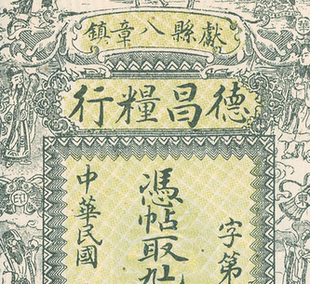 獻縣八章鎮
德昌糧行
字第
憑帖取
中華民國